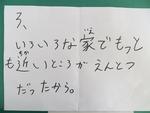 3、
いろいろな家でもっと
も近いところがえんとつ
だったから。